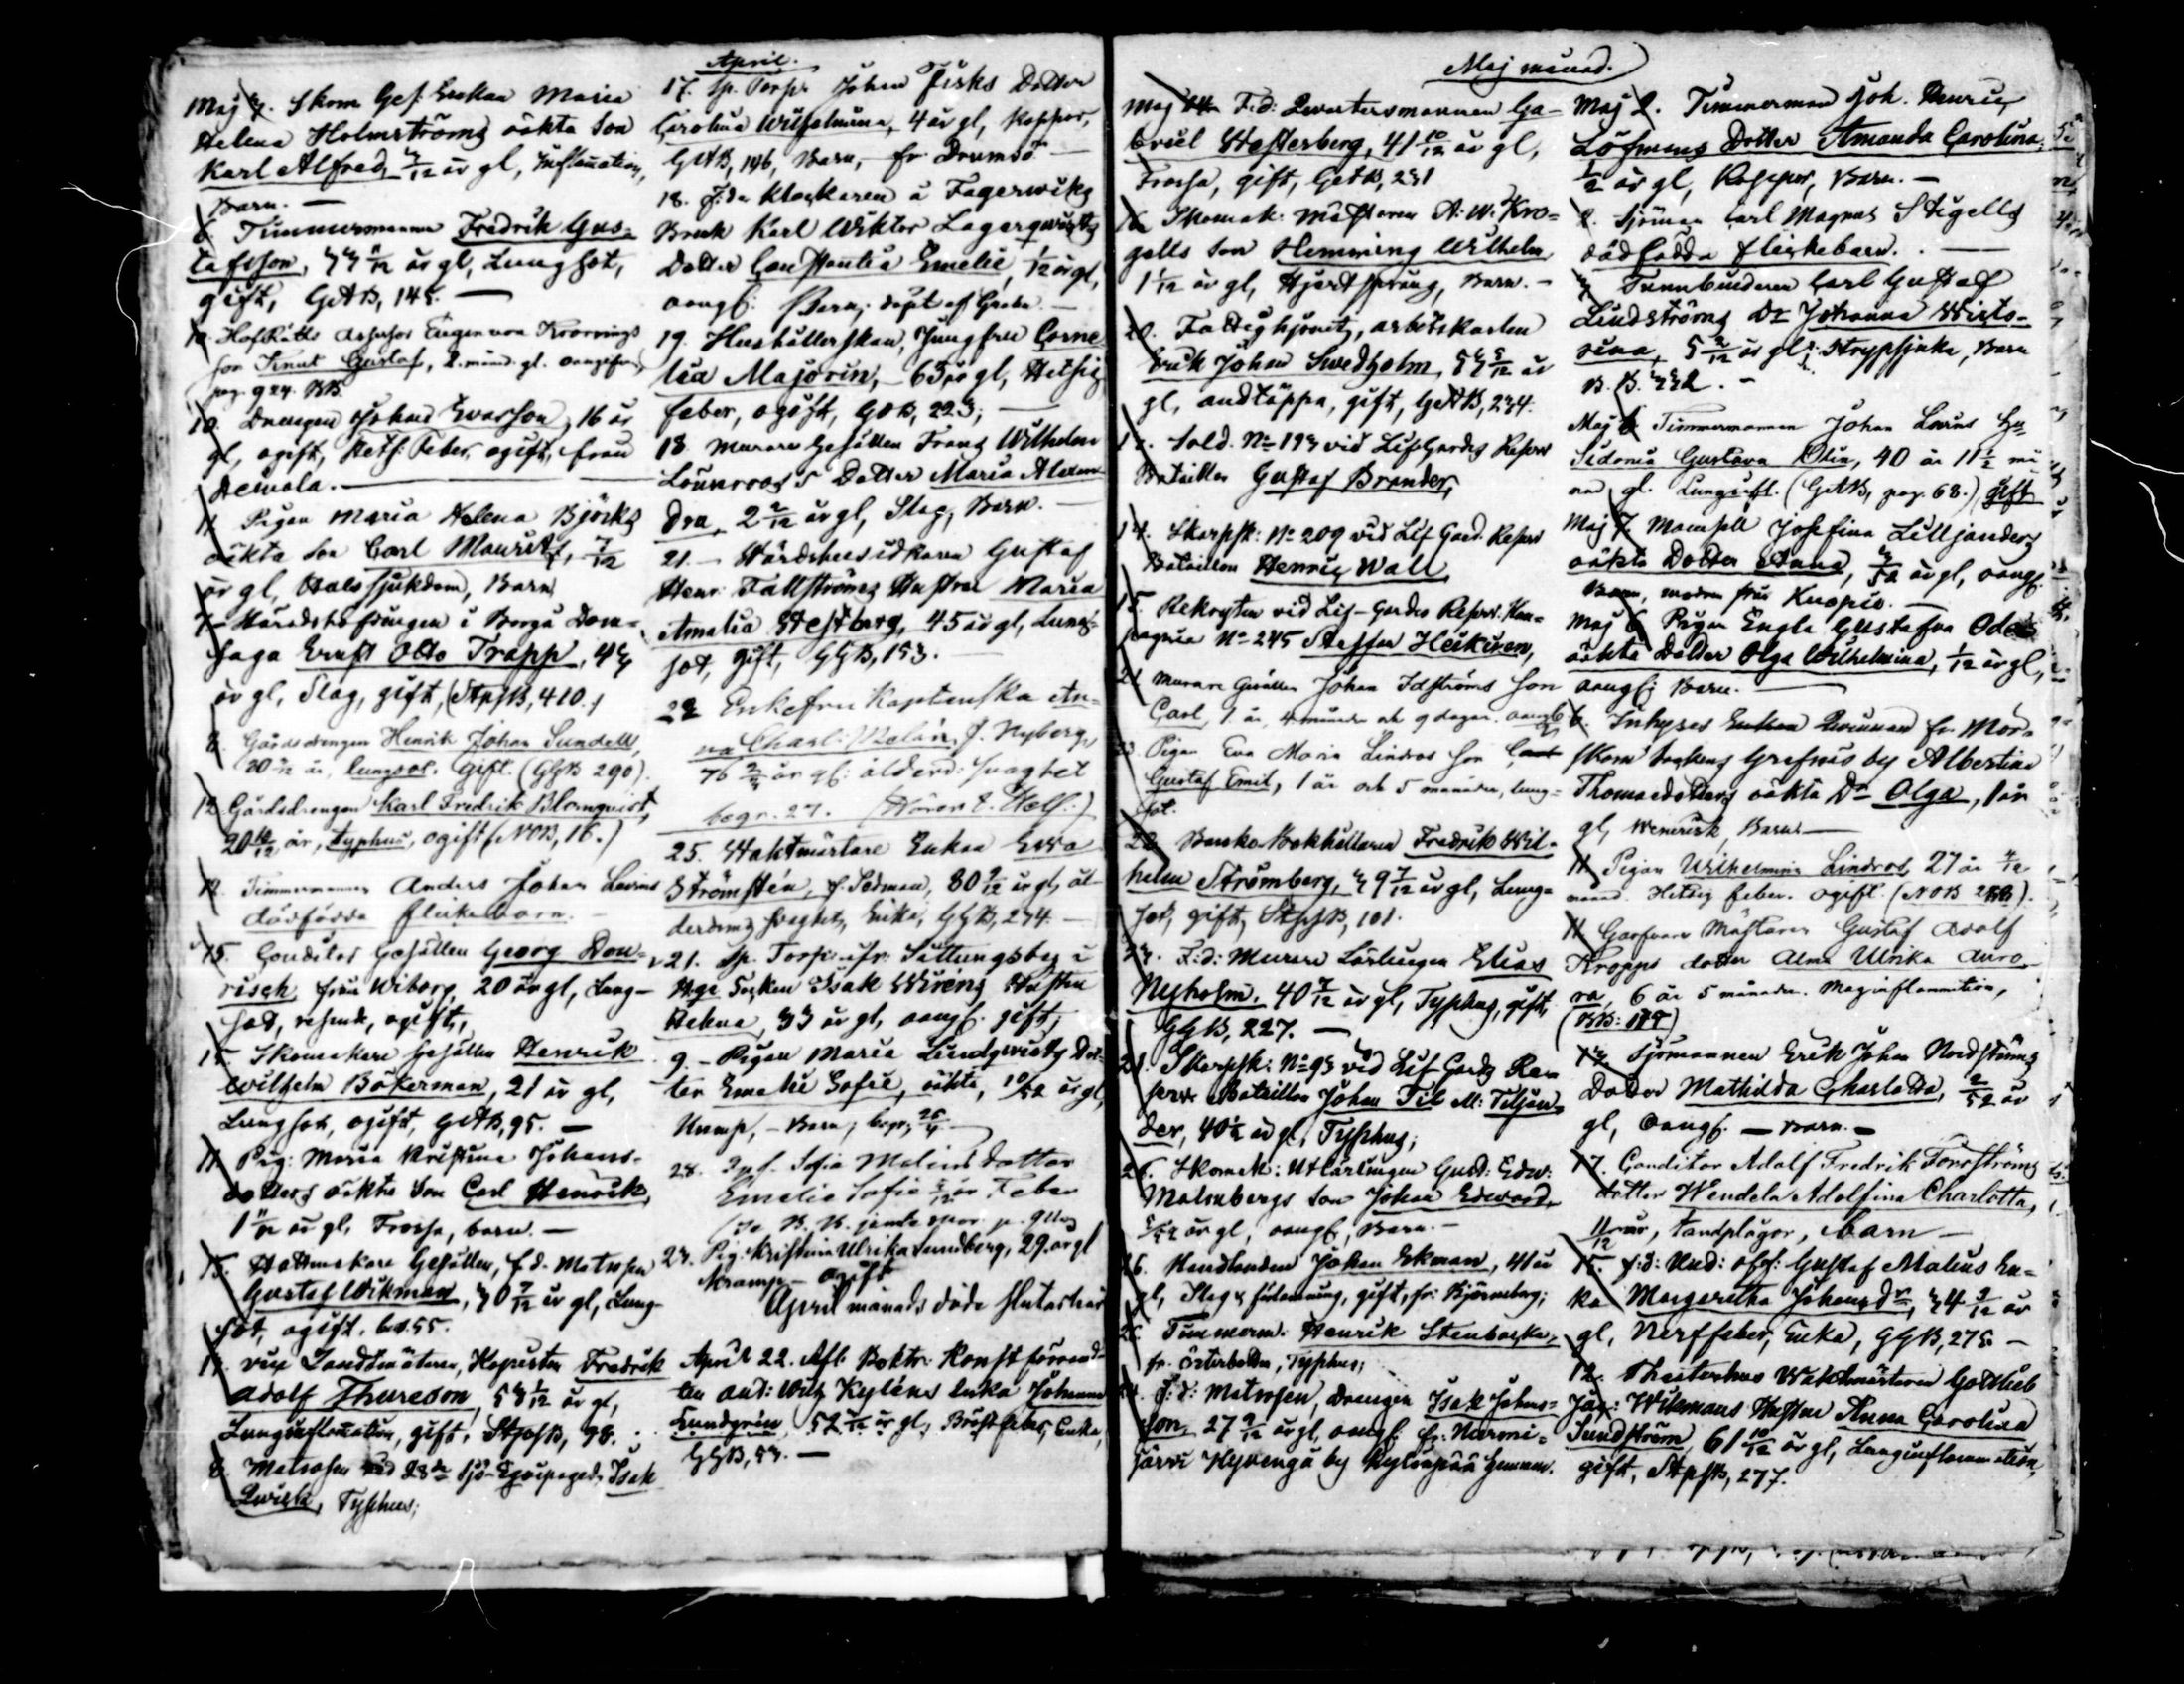 Maj 7. Skom Ges. Enkan Maria
Helena Holmströms oäkta Son
Karl Alfred, 3/12 år gl, Inflamation,
Barn. —
6. Timmermannen Fredrik Gus-
tafsson, 11/12 år gl, Lungsot,
gift, GetB, 145. —
10. HofRätts Assessor Eugen von Knorrings
son Knut Gustaf, 2. månd. gl. oangifven,
pag. 924. BB.
10. Drengen Johan Evasson, 16 år
gl, ogift, Hets. Feber, ogift, från
Heinola. —
11. Pigan Maria Helena Björks
oäkta son Carl Maurits, 7/12
år gl, Halssjukdom, Barn
7. Häradshöfdingen i Borgå Dom-
saga Ernst Otto Trapp, 43
år gl, Slag, gift, (StpsB, 410.)
8. Gårdsdrengen Henrik Johan Sundell,
30 år, lungsot. Gift. (GGB 290).
12. Gårdsdrengen Karl Fredrik Blomqvist,
20 10/12 år, typhus, ogift (NOB, 16.)
12. Timmermannen Anders Johan Levins
dödfödda flickebarn. —
15. Conditor Gesällen Georg Don-
risch från Wiborg, 20 år gl, Lung-
sot, resande, ogift,
15. Skomakare Gesällen Henrik
Wilhelm Bökerman, 21 år gl,
Lungsot, ogift, GetB, 95. —
11. Pig: Maria Kristina Johans-
dotters oäkta Son Carl Henrik,
1 11/12 år gl, Frossa, barn. —
15. Hattmakare Gesällen, f.d. Matrosen
Gustaf Wikman, 30 7/12 år gl, Lung-
sot, ogift. 55.
17. vice Landtmätaren, Kopisten Fredrik
Adolf Thureson, 53 1/12 år gl,
Lunginflamation, gift, StpsB, 98.
8. Matrosen vid 28de Sjö-Equipaget Isak
Qwist, Typhus;
April.
17. Sp. Torp. Johan Firks Dotter
Carolina Wilhelmina, 4 år gl, Koppor,
GetB, 146, Barn, fr. Drumsö —
18. f.d. Klockaren å Fagerwiks
Bruk Karl Wiktor Lagerqwists
Dotter Constantia Emelie, 1/12 år gl,
oangf: Barn; döpt af Greta. —
19. Hushållerskan, Jungfru Corne
lia Majorin, 65 år gl, Hetsig
feber, ogift, GoB, 223;
18. Murare Gesällen Frans Wilhelm
Lönnroos's Dotter Maria Alexan
dra, 2 2/12 år gl, Slag, Barn. —
21. — Wärdshusidkaren Gustaf
Henr: Fallströms Hustru Maria
Amalia Westberg, 45 år gl, Lung-
sot, gift, GGB, 153.
22 Enkefru Kaptenska An-
na Charl: Melin, f. Nyberg,
76 3/4 år gl: ålderd: svaghet
begr. 27.
25. Waktmästare Enkan Ewa
Strömsten, f. Sedman, 80 7/12 år gl, ål-
derdoms svaghet, Enka, GGB, 274. —
21. Sp. Torp. fr. Sittungsby i
Socken Isak Wiréns Hustru
Helena, 33 år gl, oangf. gift;
9. — Pigan Maria Lindqwists Dot-
ter Emelie Sofie, oäkta, 10/52 år gl,
Kramp, — Barn; begr. 26/4 —
28. Ipf. Sofia Malins dotter
Emelie Sofie år, Feber
23. Pig. Kristina Ulrika Sundberg, 29 år gl
Kramp — Ogift
April månads döde slutar här
April 22. Afl. Boktr. Konstförvand-
ten And: Wilh Kyléns enka Johanna
Lundgrén, 52 år gl, Bröstfeber, Enka,
GGB, 53. —
Maj månad.
Maj 14 F.d: Qvartersmannen Ga-
briel Westerberg, 41 10/12 år gl,
Frossa, gift, GetB, 231
16 Skomak: Mästaren A: W. Kro-
gells Son Hemming Wilhelm,
1 1/12 år gl, Hjertsprång, Barn. —
20. Fattighjonet, arbetskarlen
Erik Johan Swedholm, 55 5/12 år
gl, andtäppa, gift, GetB, 234.
12. Sold. No 193 vid LifGardes Reserv
Bataillon Gustaf Brander,
14. Skarpsk: No 209 vid Lif Gard. Reserv
Bataillon Henric Wall
15. Rekryten vid Lif-Gardes Reserv. Kom-
pagnie No 245 Steffan Heikinen,
21. Murare Gesällen Johan Idströms son
Carl, 1 år, 4 månader och 9 dagar. oangf.
23. Pigan Eva Maria Lindros son
Gustaf Emil, 1 år och 5 månader, lung-
sot.
22. Banko-Bokhållaren Fredrik Wil-
helm Strömberg, 39 7/12 år gl, Lung-
sot, gift, StpsB, 101.
23. F.d: Murare Lärlingen Elias
Nyholm, 40 7/12 år gl, Typhus, gift,
GGB, 227. —
21. Skarpsk: No 93 vid Lif Gards Re-
serve Bataillon Johan Til Tiljan-
der, 40 1/2 år gl, Typhus;
26. Skomak: Utlärlingen Gust: Edw:
Malmbergs Son Johan Edward,
5/52 år gl, oangf, Barn. —
26. Handlanden Johan Ekman, 41 år
gl, Slag & förlamning, gift, fr: Björneborg;
26. Timmerm. Henrik Stenbacka,
fr. Österbotten, Typhus;
24. f: d: Matrosen, Drengen Isak Johns-
son, 27 9/12 år gl, oangf. fr. Nurmi-
järvi Hyvengä by Kyläsepää hemman.
Maj 2. Timmerman Joh. Henric
Löfmans Dotter Amanda Carolina,
1/2 år gl, Koppor, Barn. —
2. Sjöman Carl Magnus Stigells
dödfödda flickebarn. —
3 Tunnbindaren Carl Gustaf
Lindströms Dr Johanna Wicto-
rina, 5 2/12 år gl, Strypsjuka, Barn
B. B. 332. —
Maj 6 Timmermannen Johan Lerins Hu
Sidonia Gustava Olin, 40 år 11 1/2 må
nad gl. Lunginfl. (GetB, pag. 68.) Gift
Maj 7. Mamsell Josefina Lilljanders
oäkta Dotter Anna, 3/52 år gl, oangf.
Barn, modren från Kuopio. —
Maj 6 Pigan Engla Gustafva Ode
oäkta Dotter Olga Wilhelmina, 1/12 år gl,
oangf; Barn. —
6. Inhyses Enkan Qwinnan fr. Mor-
skom Sockens Grefnäs by Albertina
Thomasdotters oäkta Dr Olga, 1 år
gl, Venerisk, Barn —
11. Pigan Wilhelmina Lindros, 27 år
månad. Hetsig feber. ogift. (NOB 288).
11. Garfvare Mästaren Gustaf Adolf
Kropps dotter Alma Ulrika Auro-
ra, 6 år 5 månader. Maginflammation,
(BB: 117)
13. Sjömannen Erik Johan Nordströms
Dotter Mathilda Charlotta, 2/52 år
gl, oangf. — Barn. —
17. Conditor Adolf Fredrik Forsströms
dotter Wendela Adolfina Charlotta,
11/12 år, tandplågor, barn —
15. f:d: Und: off: Gustaf Malins En-
ka Margaretha Johansdr, 74 3/12 år
gl, Nerffeber, Enka, GGB, 275 —
12. Theaterhus Waktmästaren Gottlieb
Jac: Wikmans Hustru Anna Carolina
Sundström, 61 10/12 år gl, Lunginflammation,
gift, StpsB, 277.